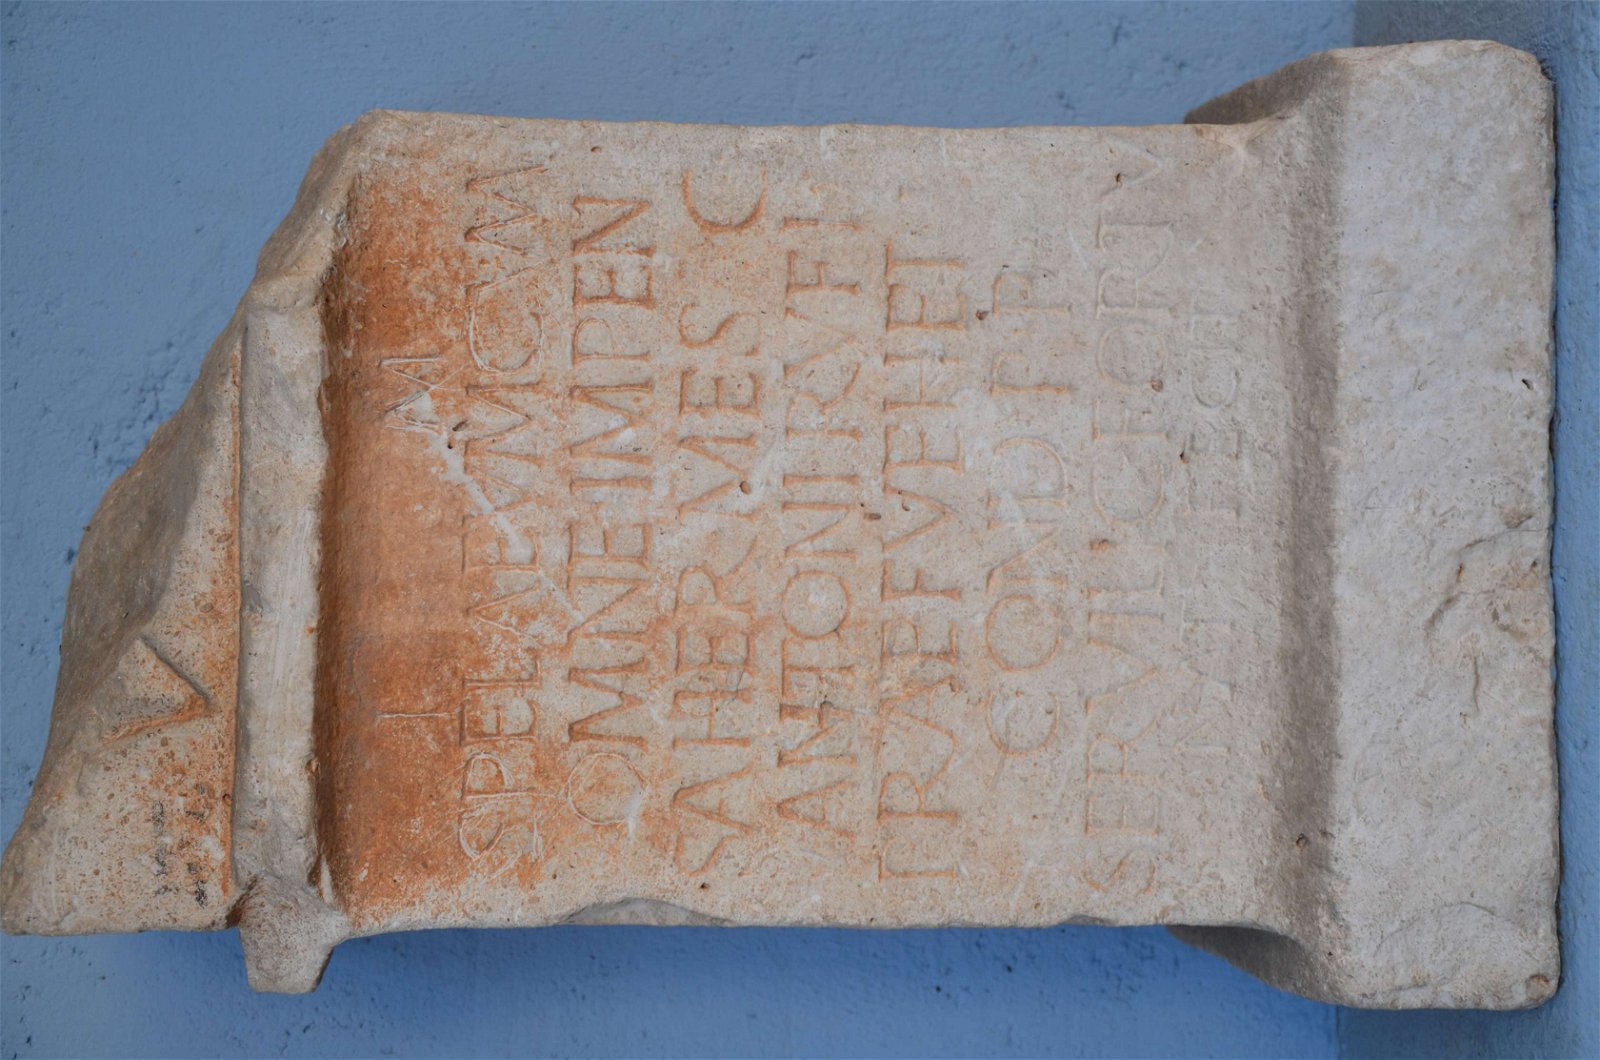 I M
SPELAEVM CVM
OMNE IMPEN
SA HERMES C
ANTONI RVFI
PRAEF VEH ET
COND P P
SER VILIC FORTV
NAT FECIT